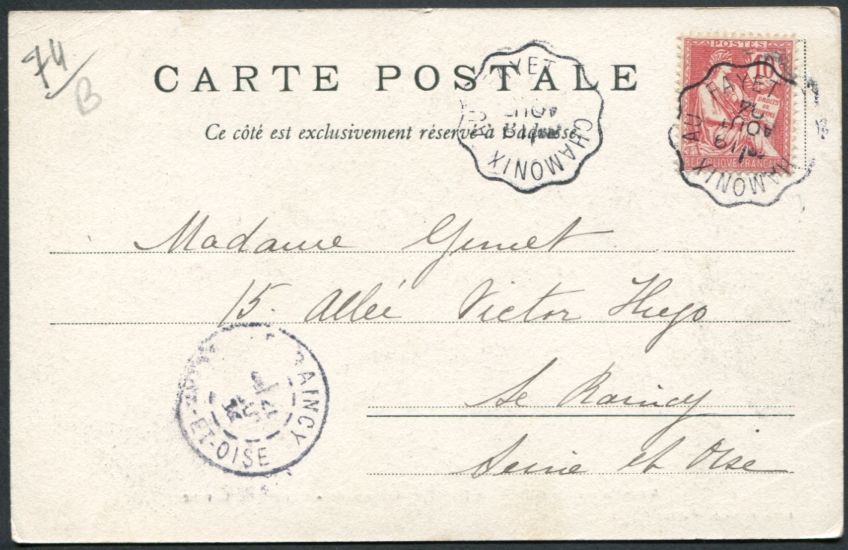 74
B
CARTE POSTALE
Ce côté est exclusivement réservé à l'adresse
CHAMONIX AU FAYET
19
AOUT
POSTES
10
DROITS DE
RÉPUBLIQUE FRANÇAISE
CHAMONIX AU FAYET
19
AOUT
04
Madame Gimet
15. Allée Victor Hugo
Le Raincy
Seine et Oise
RAINCY
-ET-OISE